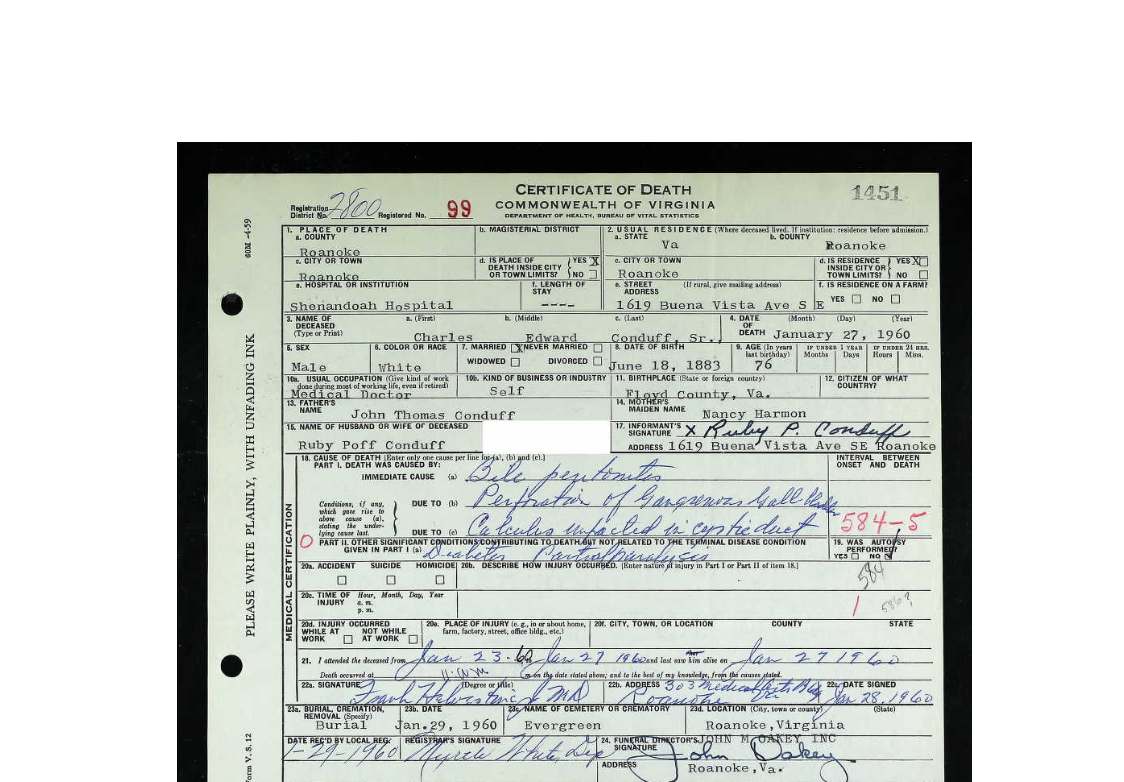 CERTIFICATE OF DEATH
COMMONWEALTH OF VIRGINIA
DEPARTMENT OF HEALTH, BUREAU OF VITAL STATISTICS
1451
Registration District No. 2800 Registered No. 99
60M -4-59
PLEASE WRITE PLAINLY, WITH UNFADING INK
orm V. S. 12
1. PLACE OF DEATH
a. COUNTY
Roanoke
b. MAGISTERIAL DISTRICT
2. USUAL RESIDENCE (Where deceased lived. If institution: residence before admission.)
a. STATE
Va
b. COUNTY
Roanoke
c. CITY OR TOWN
Roanoke
d. IS PLACE OF DEATH INSIDE CITY OR TOWN LIMITS? YES X NO
c. CITY OR TOWN
Roanoke
d. IS RESIDENCE INSIDE CITY OR TOWN LIMITS? YES X NO
e. HOSPITAL OR INSTITUTION
Shenandoah Hospital
f. LENGTH OF STAY
----
e. STREET ADDRESS (If rural, give mailing address)
1619 Buena Vista Ave S E
f. IS RESIDENCE ON A FARM?
YES NO
3. NAME OF DECEASED
(Type or Print)
a. (First)
Charles
b. (Middle)
Edward
c. (Last)
Conduff, Sr.
4. DATE OF DEATH (Month) (Day) (Year)
January 27, 1960
5. SEX
Male
6. COLOR OR RACE
White
7. MARRIED X NEVER MARRIED
WIDOWED DIVORCED
8. DATE OF BIRTH
June 18, 1883
9. AGE (In years last birthday)
76
IF UNDER 1 YEAR
Months Days
IF UNDER 24 HRS.
Hours Mins.
10a. USUAL OCCUPATION (Give kind of work done during most of working life, even if retired)
Medical Doctor
10b. KIND OF BUSINESS OR INDUSTRY
Self
11. BIRTHPLACE (State or foreign country)
Floyd County, Va.
12. CITIZEN OF WHAT COUNTRY?
13. FATHER'S NAME
John Thomas Conduff
14. MOTHER'S MAIDEN NAME
Nancy Harmon
NAME OF HUSBAND OR WIFE OF DECEASED
Ruby Poff Conduff
17. INFORMANT'S SIGNATURE X Ruby P. Conduff
ADDRESS 1619 Buena Vista Ave SE Roanoke
MEDICAL CERTIFICATION
18. CAUSE OF DEATH (Enter only one cause per line for (a), (b) and (c).)
PART I. DEATH WAS CAUSED BY:
IMMEDIATE CAUSE (a) Bile peritonitis
INTERVAL BETWEEN ONSET AND DEATH
Conditions, if any, which gave rise to above cause (a), stating the underlying cause last.
DUE TO (b) Perforation of Gangrenous Gall Bladder
DUE TO (c) Calculus impacted in cystic duct
584-5
0
PART II. OTHER SIGNIFICANT CONDITIONS CONTRIBUTING TO DEATH BUT NOT RELATED TO THE TERMINAL DISEASE CONDITION GIVEN IN PART I (a)
Diabetes Partial paralysis
19. WAS AUTOPSY PERFORMED?
YES NO
584
20a. ACCIDENT SUICIDE HOMICIDE
20b. DESCRIBE HOW INJURY OCCURRED. (Enter nature of injury in Part I or Part II of item 18.)
20c. TIME OF INJURY Hour, Month, Day, Year
a. m.
p. m.
1 586?
20d. INJURY OCCURRED
WHILE AT WORK NOT WHILE AT WORK
20e. PLACE OF INJURY (e. g., in or about home, farm, factory, street, office bldg., etc.)
20f. CITY, TOWN, OR LOCATION COUNTY STATE
21. I attended the deceased from Jan 23-60 Jan 27 1960 and last saw him alive on Jan 27 1960
Death occurred at m on the date stated above; and to the best of my knowledge, from the causes stated.
22a. SIGNATURE (Degree or title)
Frank MD
22b. ADDRESS 303 Medical Arts Bldg
Roanoke Va
22c. DATE SIGNED
Jan 28, 1960
23a. BURIAL, CREMATION, REMOVAL (Specify)
Burial
23b. DATE
Jan.29, 1960
23c. NAME OF CEMETERY OR CREMATORY
Evergreen
23d. LOCATION (City, town or county) (State)
Roanoke,Virginia
DATE REC'D BY LOCAL REG.
1-29-1960
REGISTRAR'S SIGNATURE
Myrtle White, Dep
24. FUNERAL DIRECTOR'S SIGNATURE
JOHN M OAKEY INC
John Oakey
ADDRESS
Roanoke,Va.